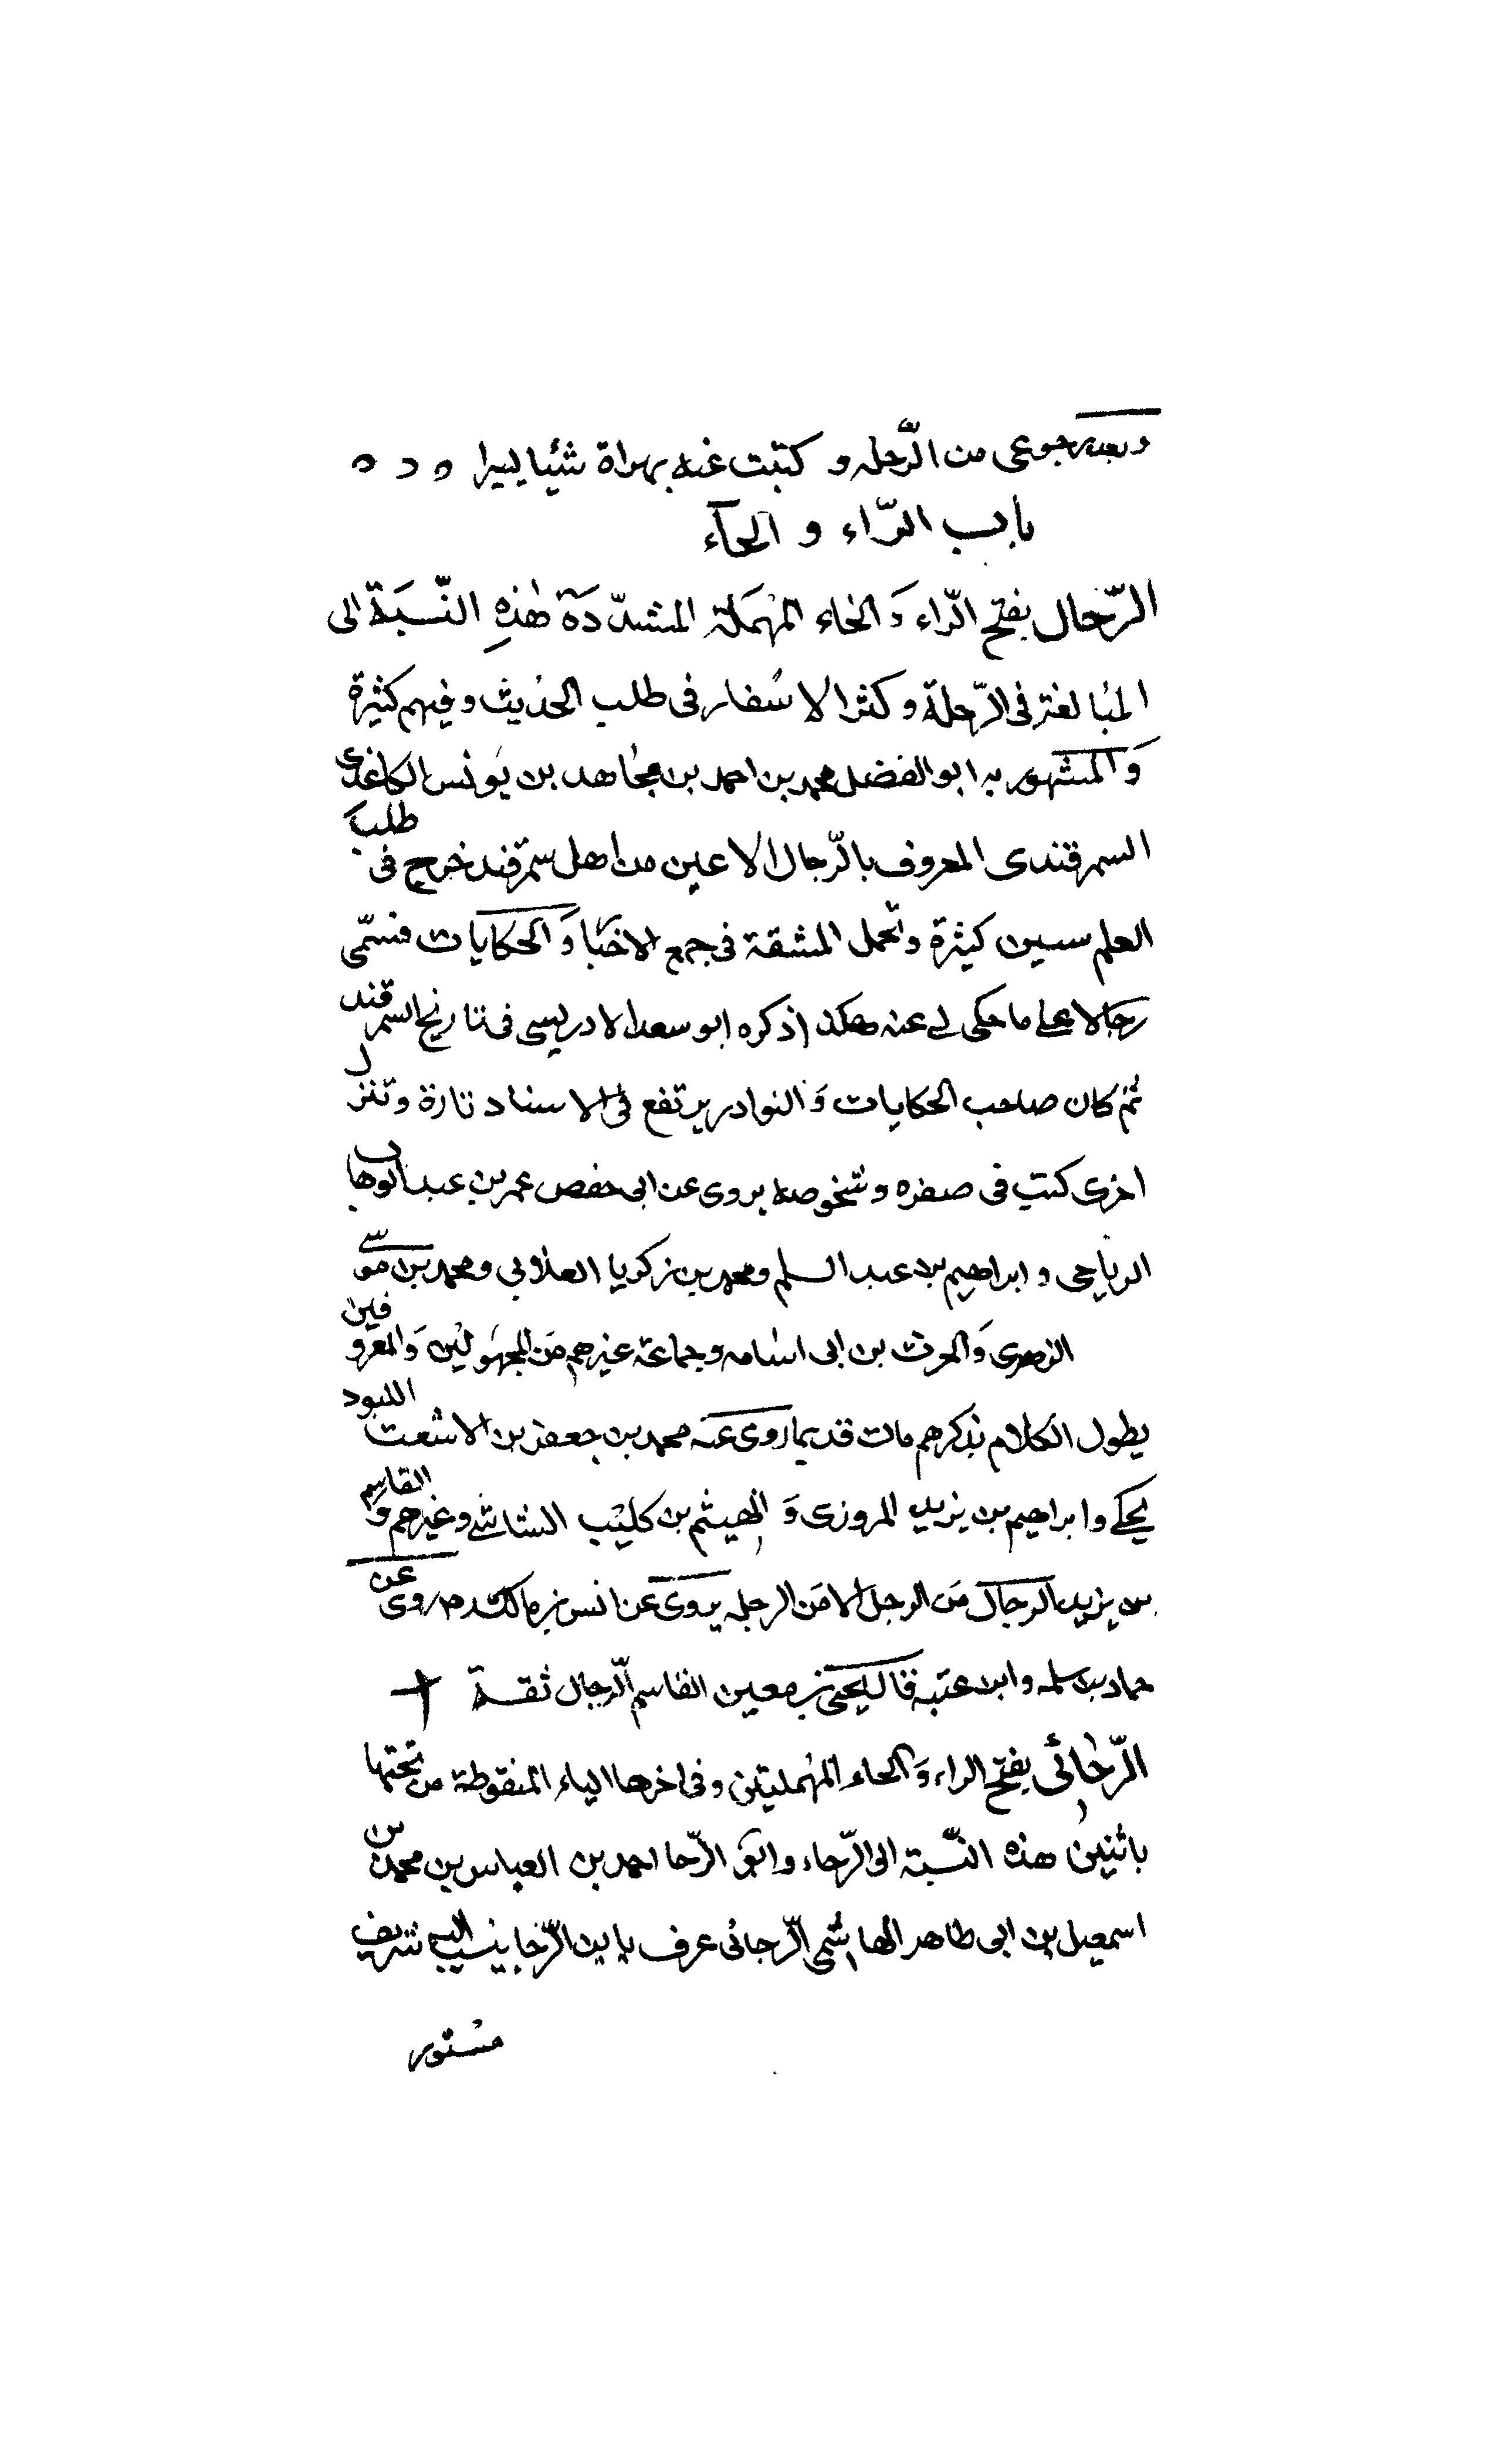 وبعد رجوعى من الرّحله و كتبت عنه بهراة شيئا يسيرا ه د ه
باب الرّاء و الحآء
الرّحال بفتح الرّاء وَ الحاء المهمَلة المشدّدَة هٰذهِ النّسبَة الى
المبالغة فى الرّحلة و كثرا لاسفار فى طلب الحديث و فيهم كثيرة
وَ المشهور به ابو الفضل محمد بن احمد بن مجاهد بن يونس الكاغدى
السمرقندى المعروف بالرّحال الاعين من اهل سمرقند خرج فى طلب
العلم سنين كثيرة و تحمل المشقة فى جمع الاخبار وَ الحكايات فسمّى
رحالا على ما حكى لى عنه هكذا ذكره ابو سعد الادريسى فى تاريخ السمرقند
ثم كان صاحب الحكايات وَ النوادر يرتفع فى الاسناد تارة و تنزل
اخرى كتب فى صفره و شخوصه يروى عن ابى حفص عمر بن عبد الوهاب
الرياحى و ابراهيم بن عبد السلم و محمد بن زكريا الغلابى و محمد بن موسى
النهرى وَ الحرث بن ابى اسامه و جماعة غيرهم مَن المجهولين وَ المعروفين
يطول الكلام بذكرهم مات قديما روى عنه محمد بن جعفر بن الاشعت اللبود
يحكى و ابراهيم بن يزيد المروزى وَ الهيثم بن كليب الشاشى و غيرهم وَ القاسم
بن يزيد الرحال مَن الرحل لا مَن الرحله يروى عن انس بن مالك رض روى عن
حماد بن سلمه و ابن عتبه قال يحيى بن معين القاسم الرّحال ثقــة
الرّحائى بفتح الراء وَ الحاء المهملتين و فى اخرها الياء المنقوطة من تحتها
باثنين هذه النّسبة الى الرّحاء و ابو الرّحا احمد بن العباس بن محمد بن
اسمعيل بن ابى طاهر الهاشمى الرّحائى عرف بابن الرّحا ينسب اليه شريف
مستور